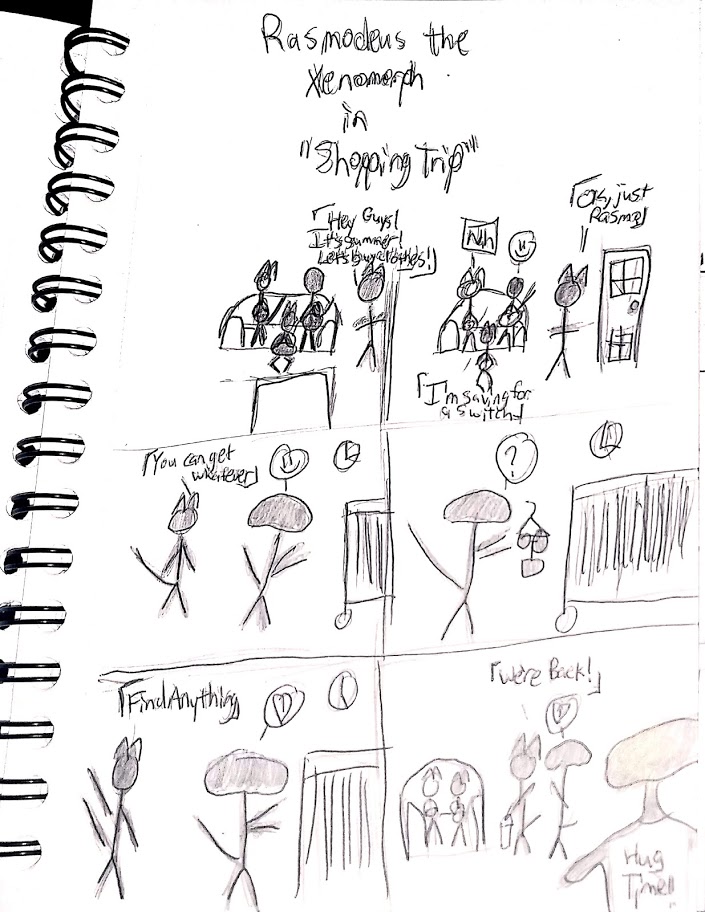 Rasmodeus the
Xenomorph
in
"Shopping Trip"
「Hey Guys!
It's summer!
Let's buy clothes!」
Nah
「Ok, just
Rasmo」
「I'm saving for
a Switch」
「You can get
whatever」
?
「Find Anything
「We're Back!」
Hug
Time!!